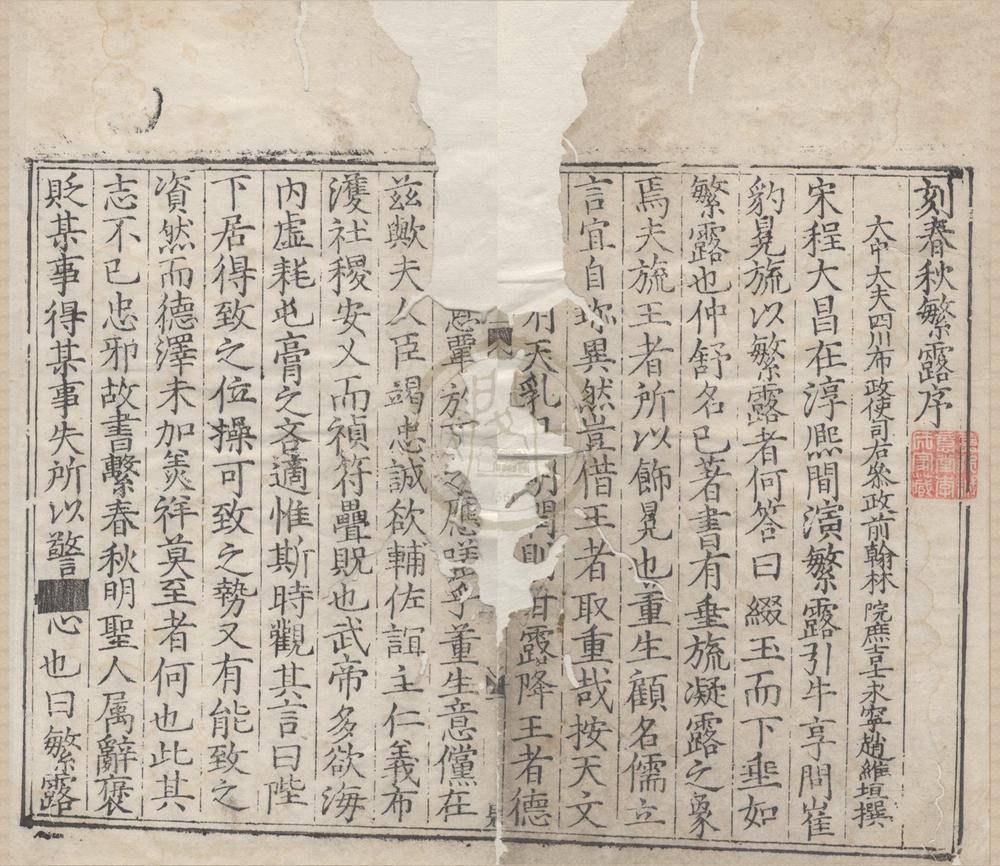 刻春秋繁露序
大中大夫四川布政使司右叅政前翰林院庶吉士永寧趙維垣撰
宋程大昌在淳熈間演繁露引牛亨問崔
豹冕旒以繁露者何答曰綴玉而下垂如
繁露也仲舒名已著書有垂旒凝露之象
焉夫旒王者所以飾冕也董生顧名儒立
言宜自珎異然豈借王者取重哉按天文
有天乳 明潤則甘露降王者德
恩覃於 應 乎董生意儻在
兹歟夫人臣竭忠誠欲輔佐誼主仁義布
濩社稷安乂而禎符疊既也武帝多欲海
内虛耗屯膏之吝適惟斯時觀其言曰陛
下居得致之位操可致之勢又有能致之
資然而德澤未加羙祥莫至者何也此其
志不已忠邪故書繫春秋明聖人属辭褒
貶某事得某事失所以警 心也曰繁露